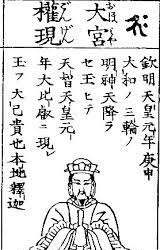 大宮
おほみや
權現
ごんげん
欽明天皇元年庚申
大和ノ三輪ノ
明神天降ラ
セ玉ヒテ
天智天皇元
年大比叡ニ現シ
玉フ大己貴也本地釋迦